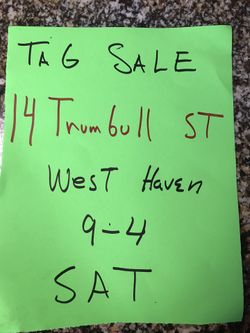 TAG SALE
14 Trumbull ST
West Haven
9-4
SAT